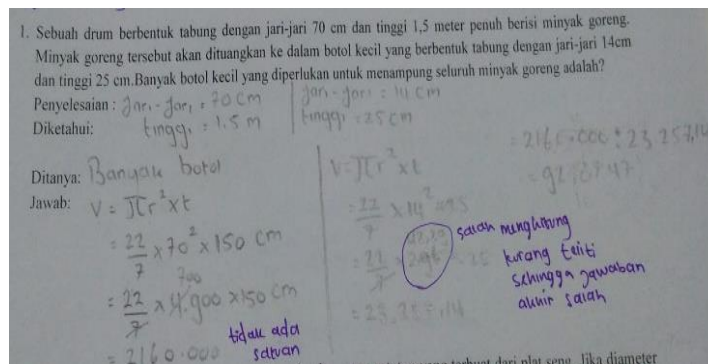 1. Sebuah drum berbentuk tabung dengan jari-jari 70 cm dan tinggi 1,5 meter penuh berisi minyak goreng.
Minyak goreng tersebut akan dituangkan ke dalam botol kecil yang berbentuk tabung dengan jari-jari 14cm
dan tinggi 25 cm.Banyak botol kecil yang diperlukan untuk menampung seluruh minyak goreng adalah?
Penyelesaian : Jari-Jari = 70 cm
Diketahui: tinggi = 1.5 m
Jari-Jari = 14 cm
tinggi = 25 cm
Ditanya: Banyak botol
Jawab: V = πr² x t
= 22/7 x 70² x 150 cm
700
= 22/7 x 4.900 x 150 cm
= 2160.000
tidak ada
satuan
V = πr² x t
= 22/7 x 14² x 25
= 22/7 x 25
= 23,257,14
salah menghitung
kurang teliti
sehingga jawaban
akhir salah
= 2160.000 : 23,257,14